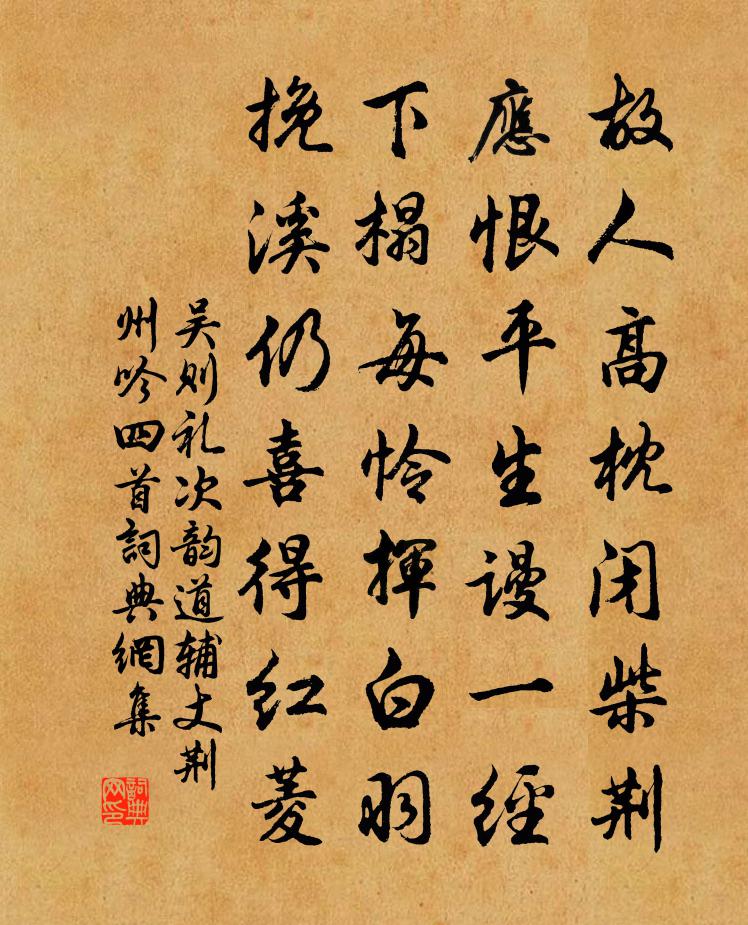 故人高枕闭柴荆
應恨平生谩一經
下榻每怜揮白羽
挽溪仍喜得红菱
吴则礼次韵道辅丈荆
州吟四首詞典網集
詞典网印